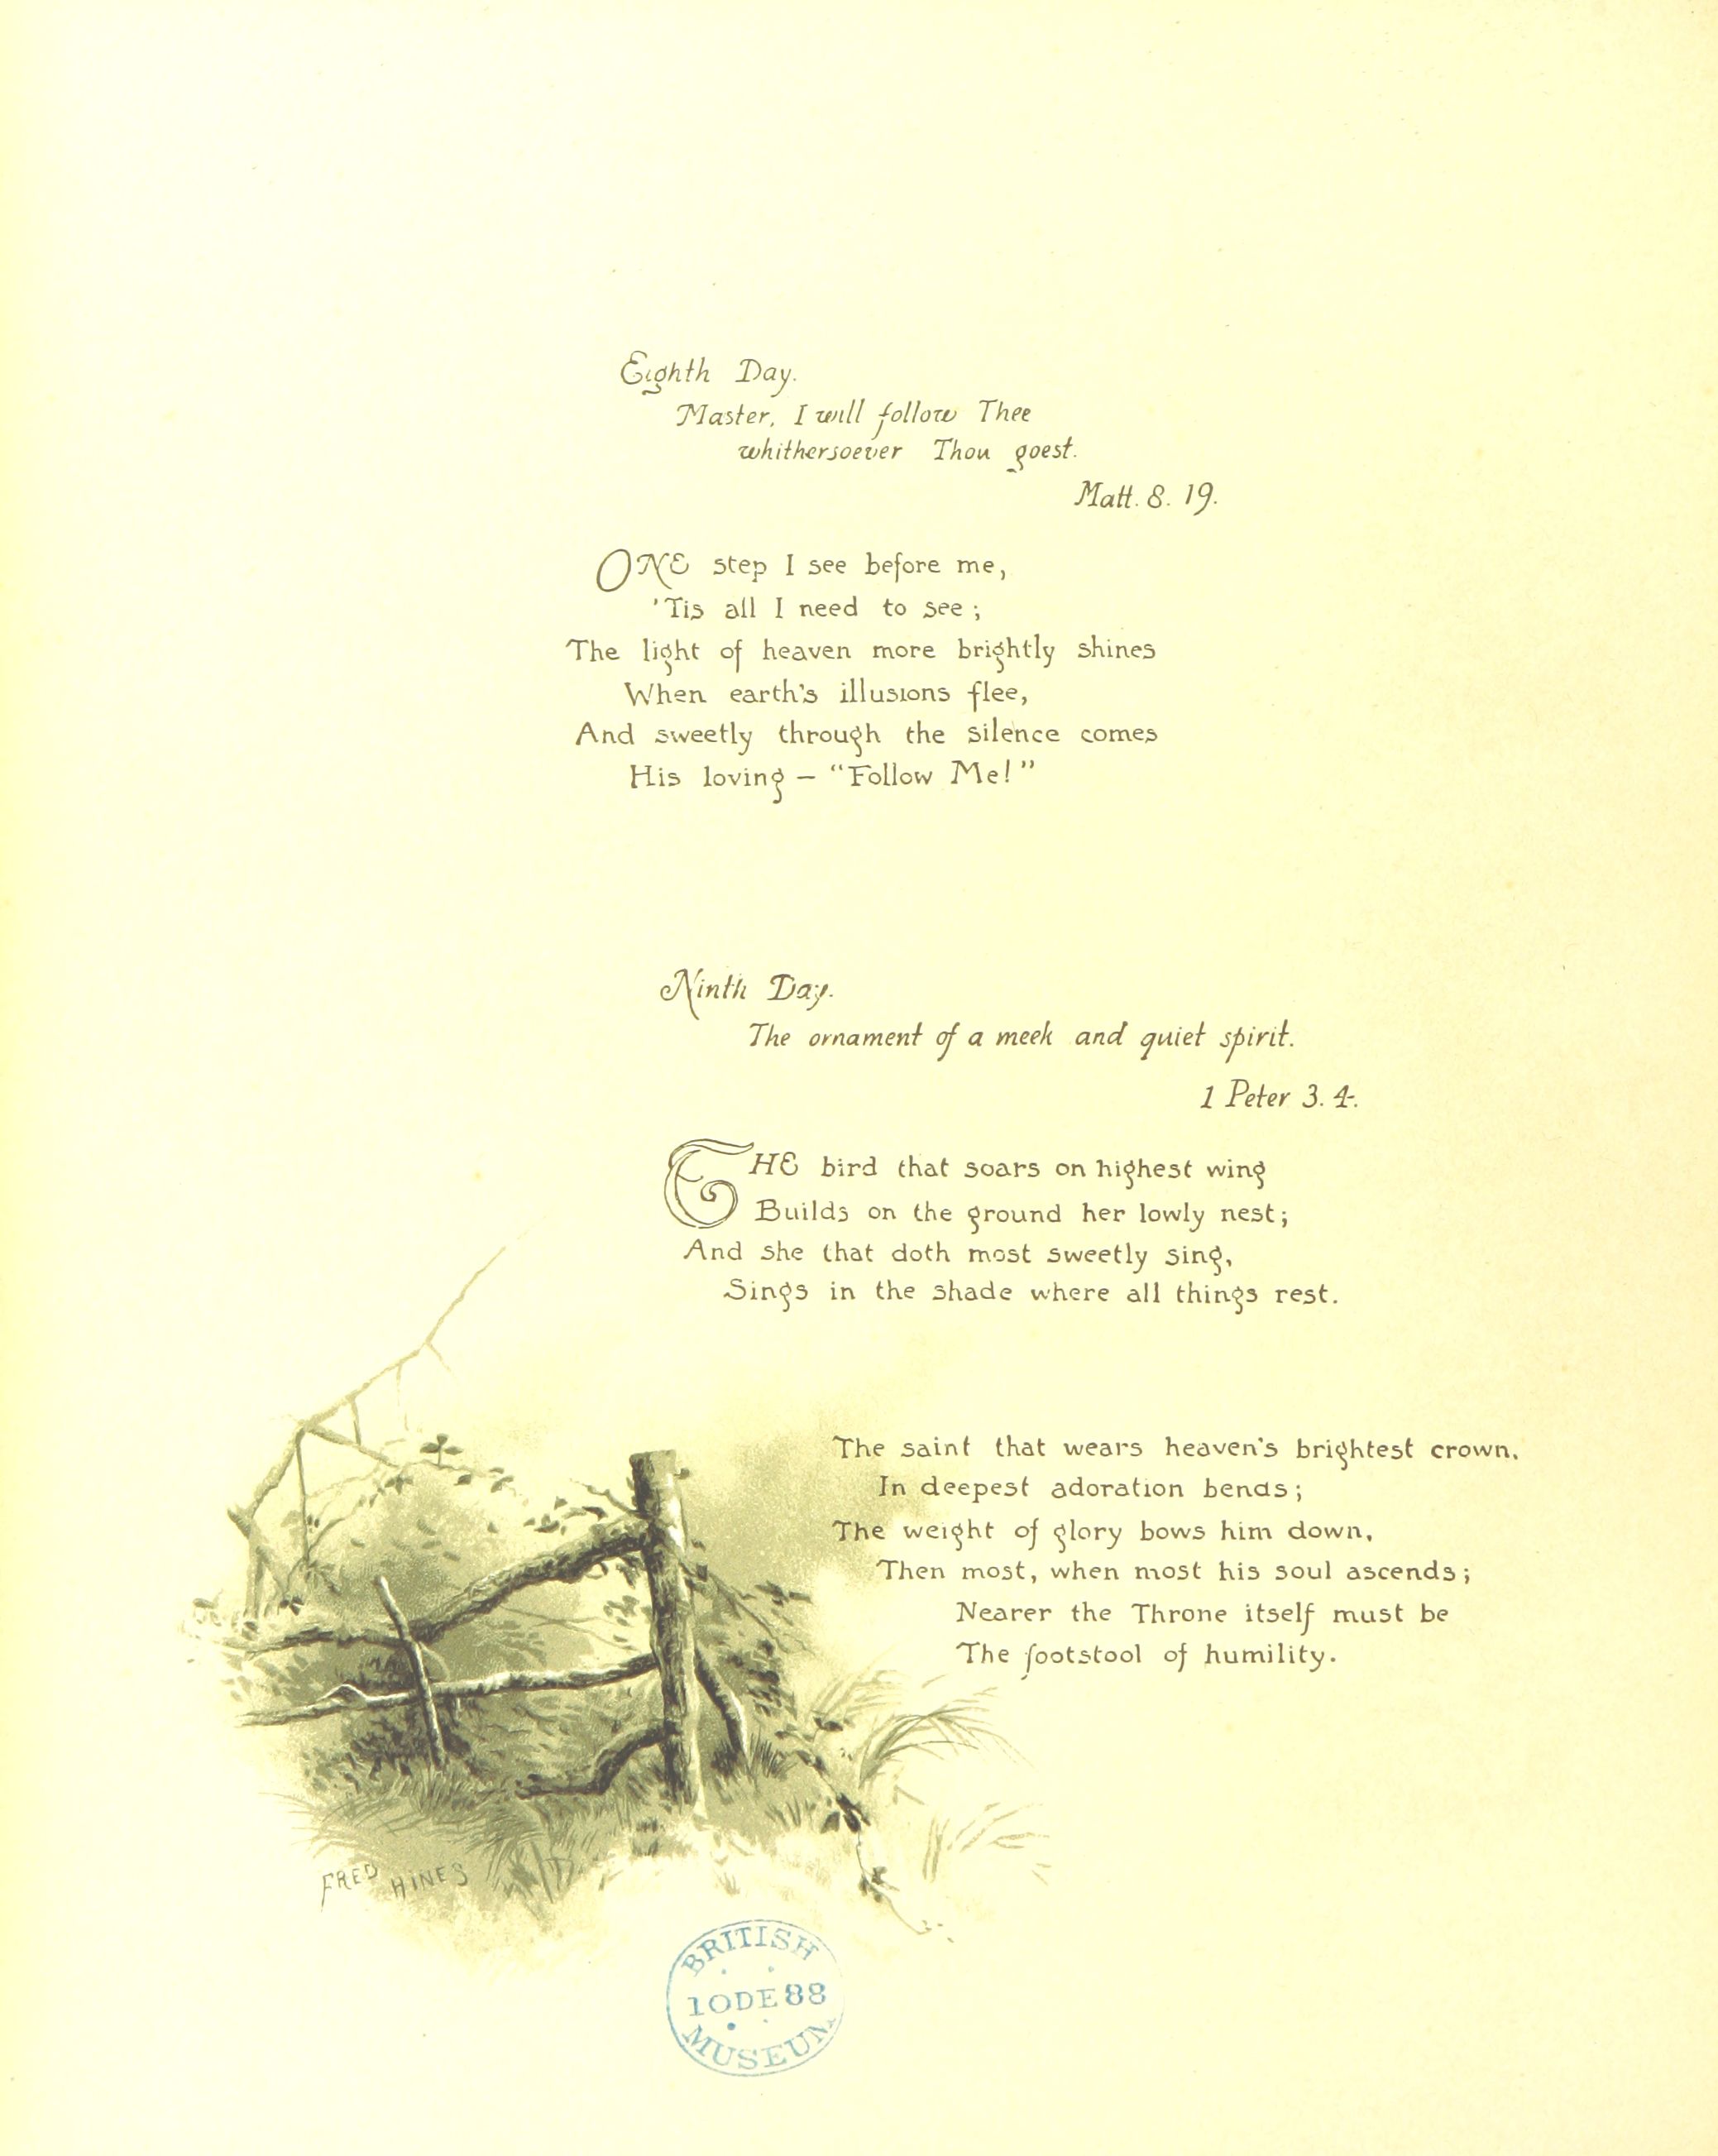 Eighth Day.
Master, I will follow Thee
whithersoever Thou goest.
Matt. 8. 19.
ONE step I see before me,
'Tis all I need to see;
The light of heaven more brightly shines
When earth's illusions flee,
And sweetly through the silence comes
His loving – “Follow Me!”
Ninth Day.
The ornament of a meek and quiet spirit.
1 Peter 3. 4.
THE bird that soars on highest wing
Builds on the ground her lowly nest;
And she that doth most sweetly sing,
Sings in the shade where all things rest.
The saint that wears heaven's brightest crown,
In deepest adoration bends;
The weight of glory bows him down,
Then most, when most his soul ascends;
Nearer the Throne itself must be
The footstool of humility.
FRED HINES
BRITISH
10DE88
MUSEUM